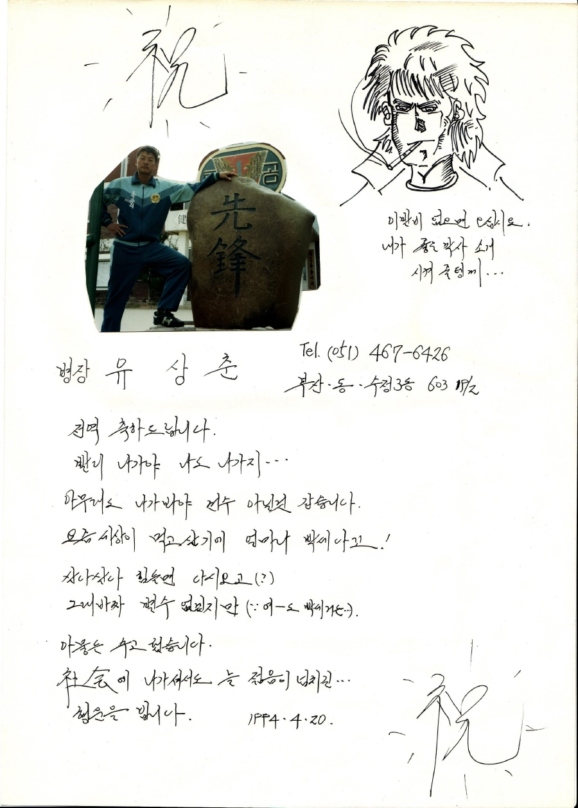 祝
先
鋒
이빨이 없으면 오십시오.
내가 좋은 박사 소개
시켜 줄텡게...
병장 유 상 춘
Tel. (051) 467-6426
부산·동·수정3동 603
전역 축하드립니다.
빨리 나가야 나도 나가지...
아무래도 나가봐야 별수 아닌것 같습니다.
요즘 세상이 먹고 살기에 얼마나 빡세다고!
살다살다 힘들면 다시오고(?)
그래봐짜 별수 없겠지만 (∵ 여-도 빡세거든.).
아뭏든 수고 했습니다.
社会에 나가셔서도 늘 젊음이 넘치길...
행운을 빕니다.
1994.4.20.
祝